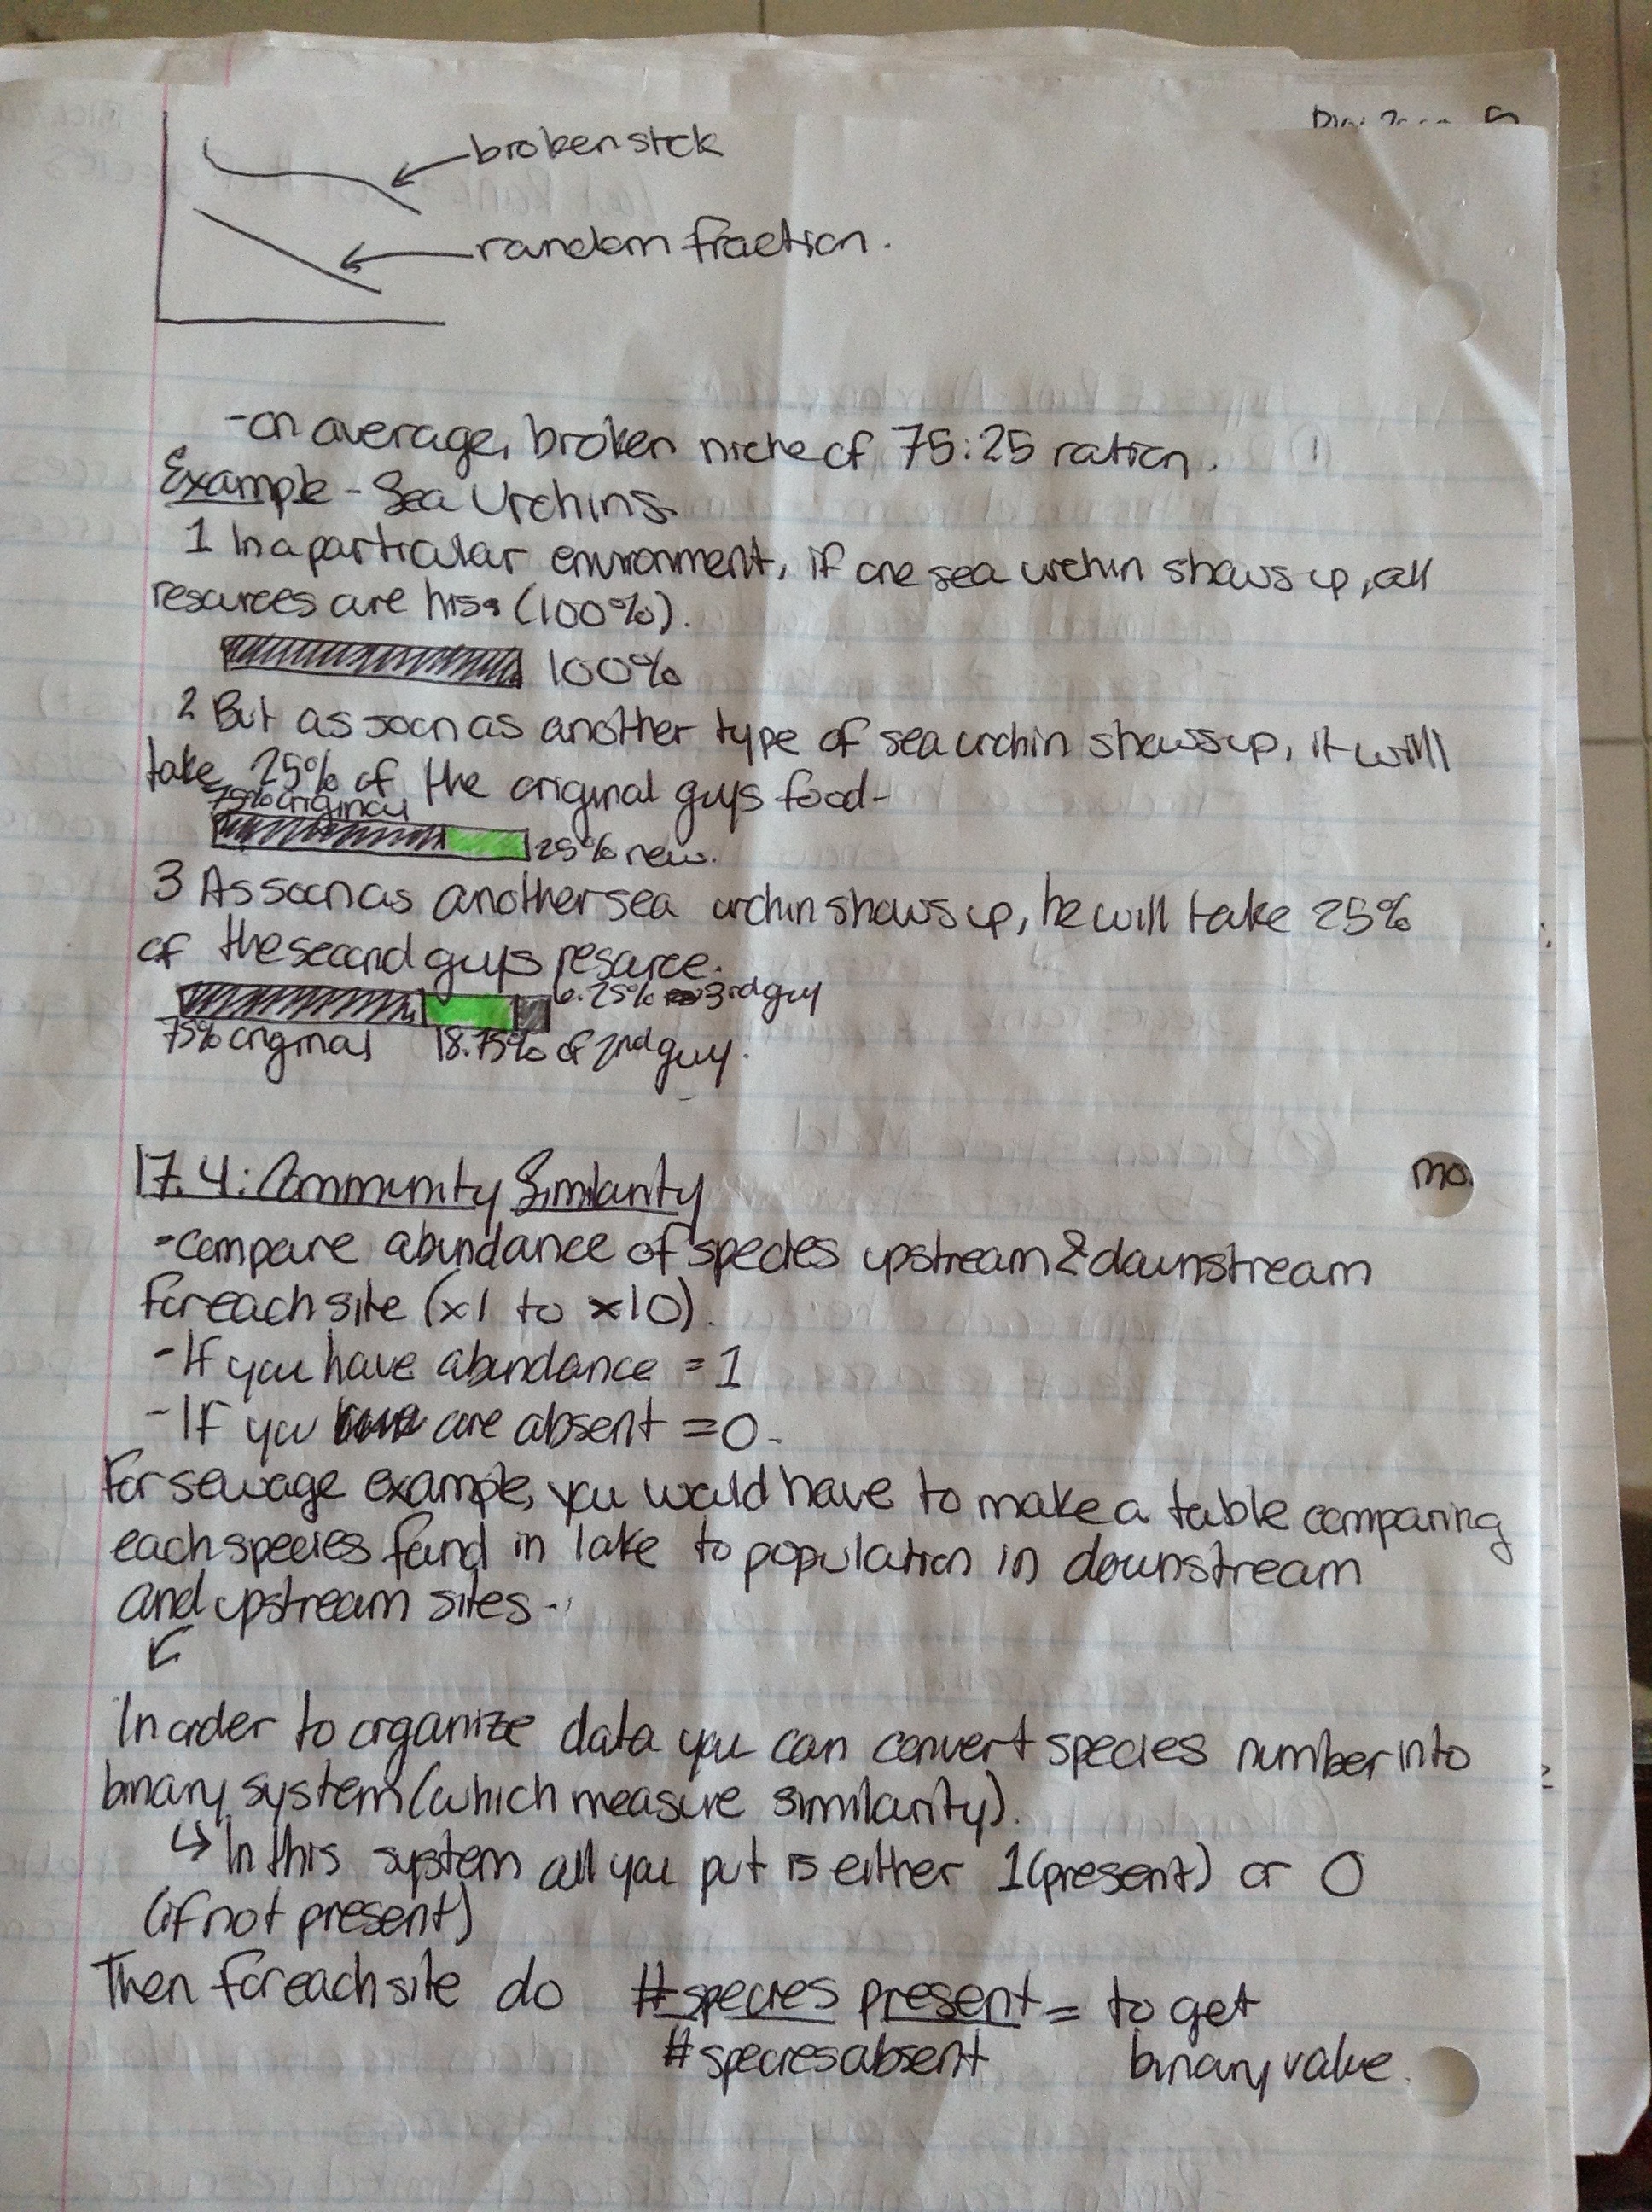 broken stick
random fraction.
-on average, broken niche of 75:25 ration.
Example - Sea Urchins.
1 In a particular environment, if one sea urchin shows up, all
resources are his. (100%).
100%
2 But as soon as another type of sea urchin shows up, it will
take 25% of the original guys food-
75% original
25% new.
3 As soon as another sea urchin shows up, he will take 25%
of the second guys resource.
6.25% 3rd guy
75% original 18.75% of 2nd guy.
17.4: Community Similarity
mo.
-compare abundance of species upstream & downstream
for each site (x1 to x10).
-If you have abundance = 1
-If you are absent = 0-
For sewage example, you would have to make a table comparing
each species found in lake to population in downstream
and upstream sites-
In order to organize data you can convert species number into
binary system (which measure similarity).
↳ In this system all you put is either 1 (present) or 0
(if not present)
Then for each site do #species present = to get
#species absent binary value.